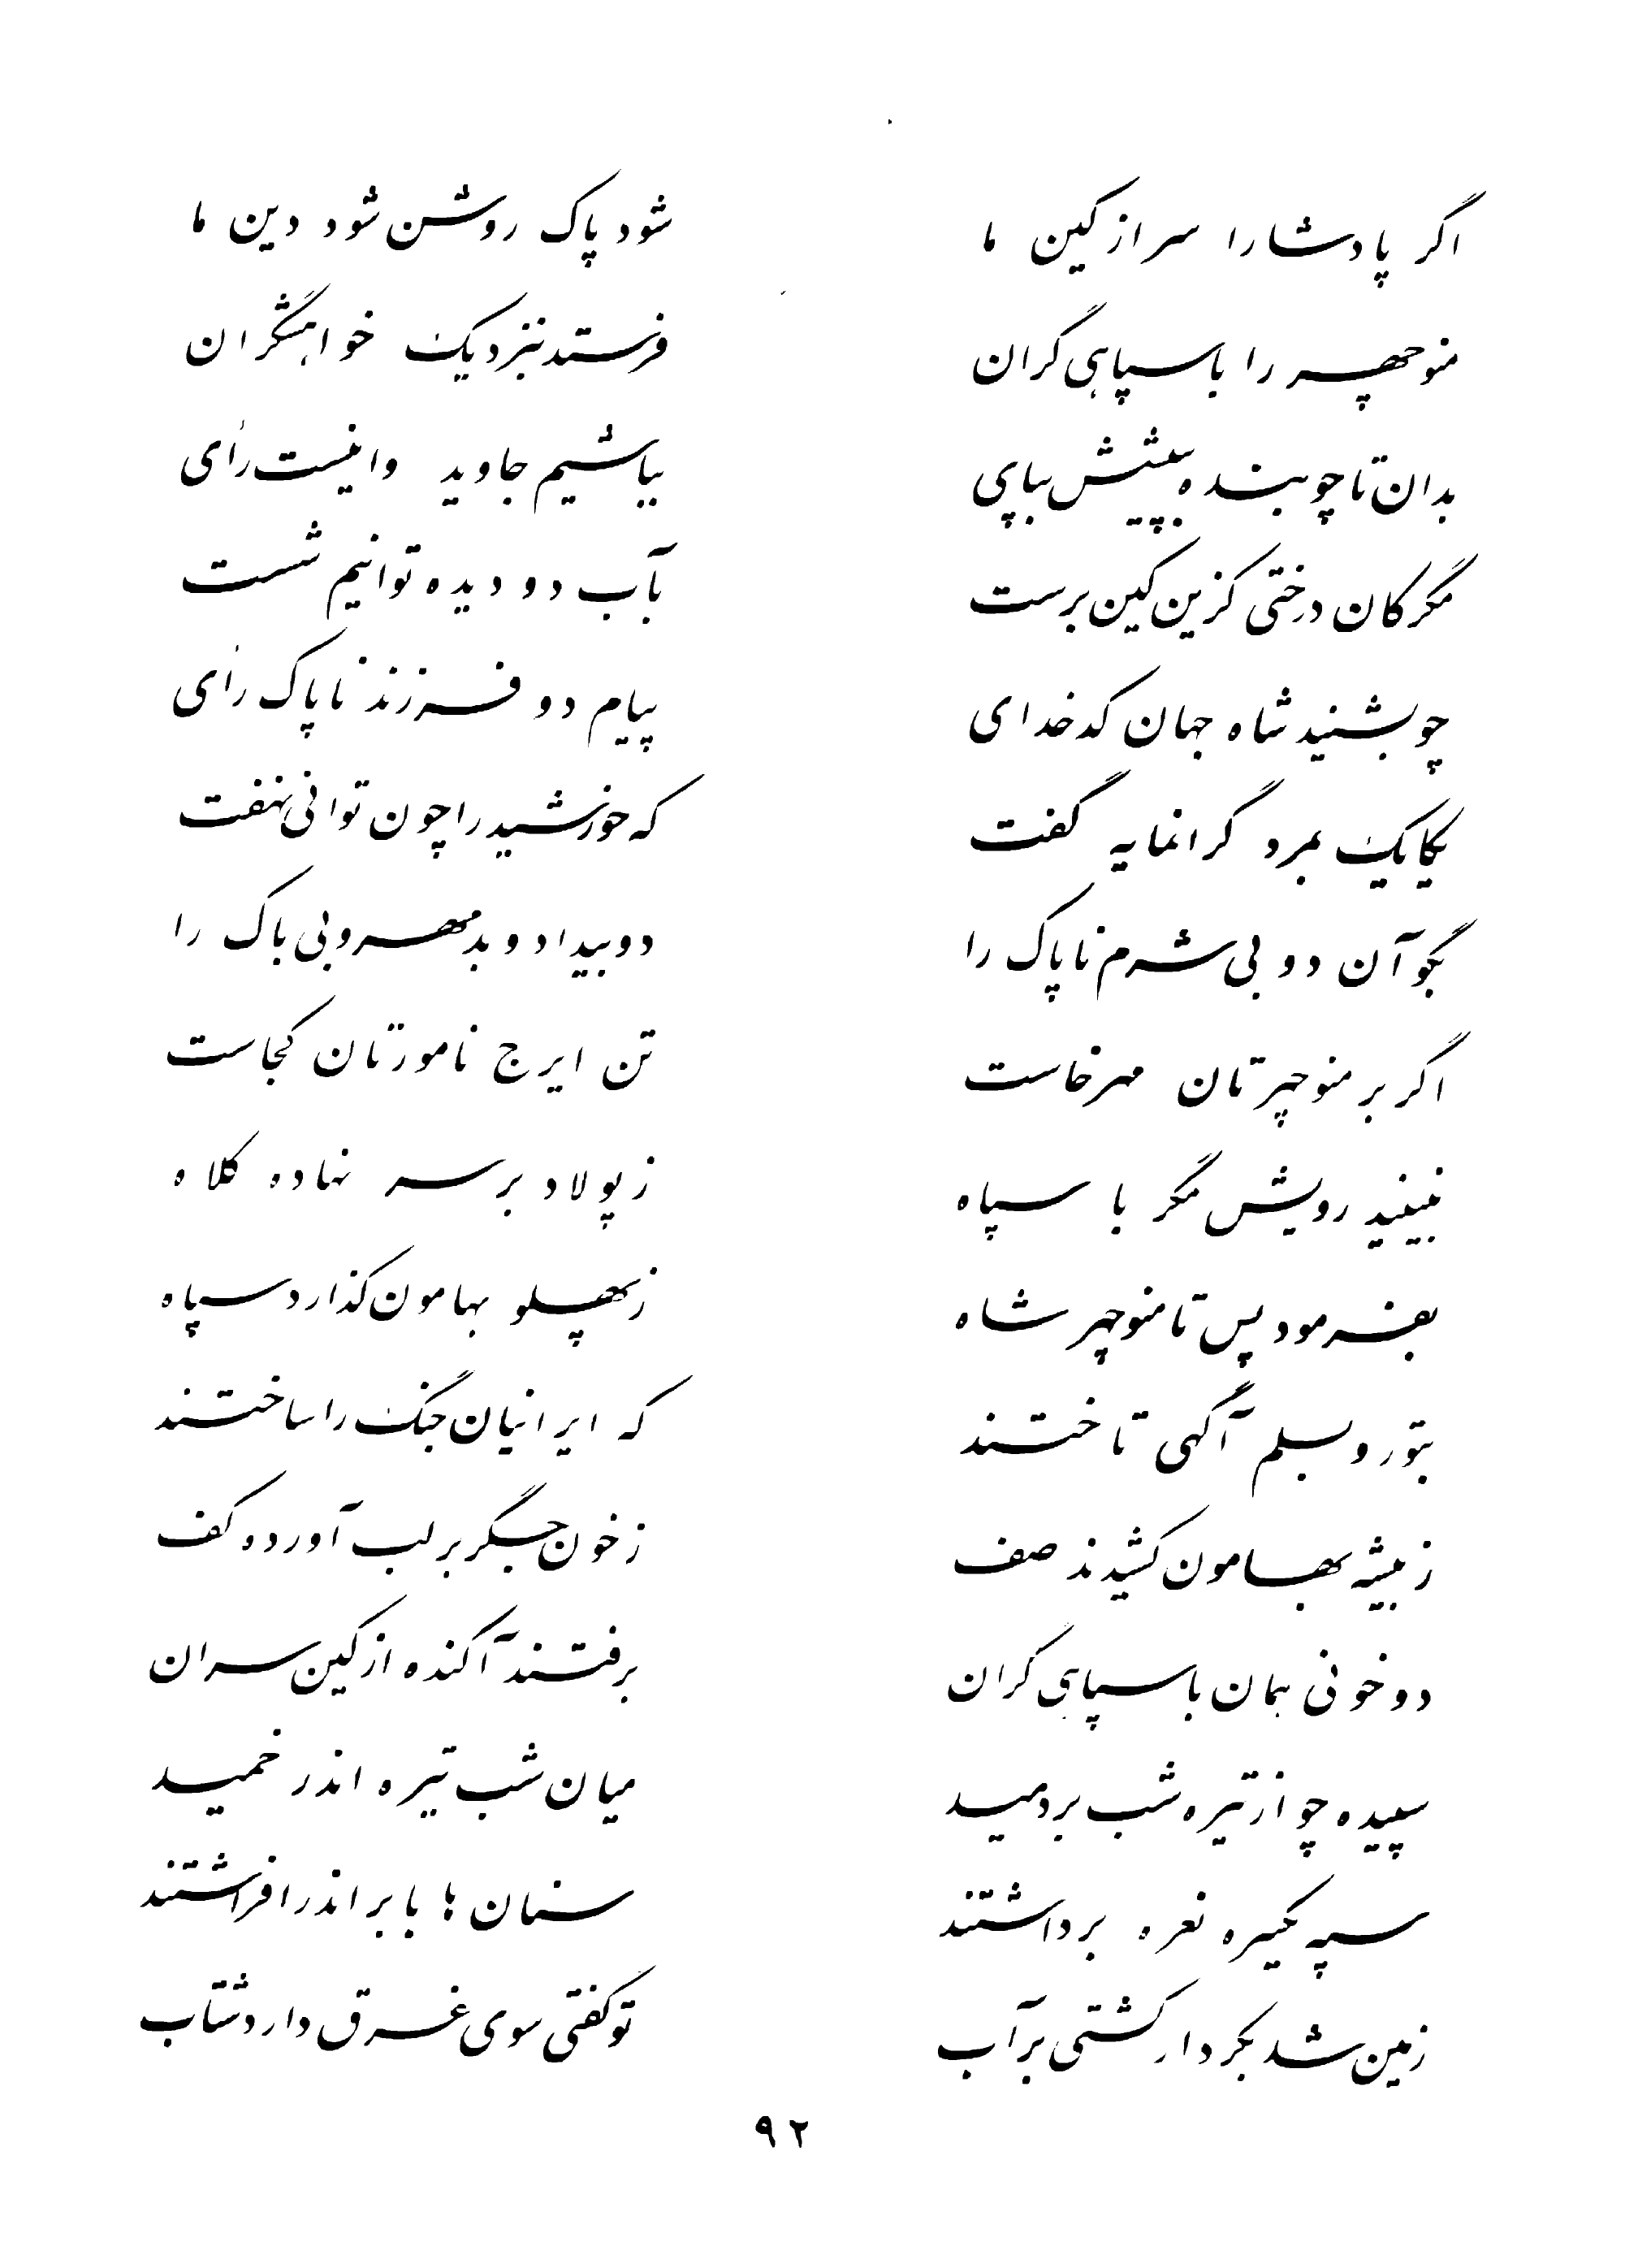 اگر پادشا را سر از کین ما
شود پاک روشن شود دین ما
منوچهر را با سپاهی گران
فرستد بنزدیک خواهشگران
بدان تا چو بنده بپیشش بپای
بباشیم جاوید و اینست رای
مگر کان درختی کزین کین برست
بآب دو دیده توانیم شست
چو بشنید شاه جهان کدخدای
پیام دو فرزند ناپاک رای
یکایک بمرد گرانمایه گفت
که خورشید را چون توانی نهفت
بگو آن دو بی شرم ناپاک را
دو بیداد و بد مهر و بی باک را
اگر بر منوچهرتان مهر خاست
تن ایرج نامورتان کجاست
نبینید رویش مگر با سپاه
ز پولاد بر سر نهاده کلاه
بفرمود پس تا منوچهر شاه
ز پهلو بهامون گذارد سپاه
بتور و بسلم آگهی تاختند
که ایرانیان جنگ را ساختند
ز بیشه بهامون کشیدند صف
ز خون جگر بر لب آورده کف
دو خونی همان با سپاهی گران
برفتند آکنده از کین سران
سپیده چو از تیره شب بردمید
میان شب تیره اندر خمید
سپه یکسره نعره برداشتند
سنان ها بابر اندر افراشتند
زمین شد بکردار کشتی برآب
تو گفتی سوی غرق دارد شتاب
۹۲